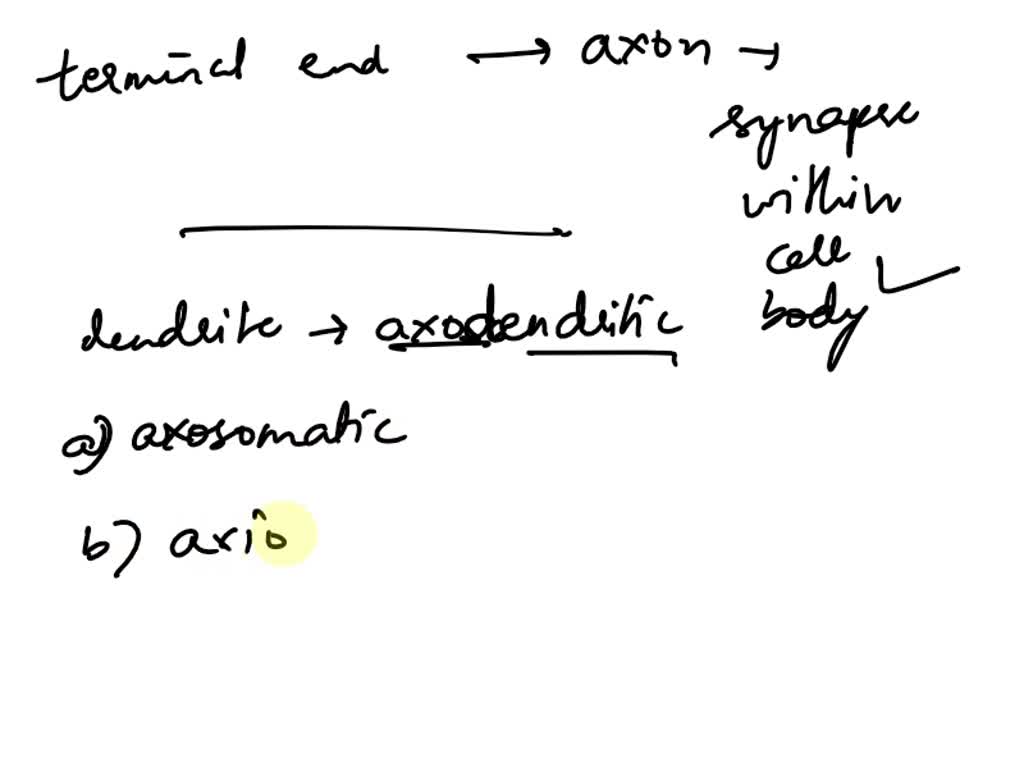 terminal end → axon →
synapse
within
cell
body
dendrite → axodendritic
a) axosomatic
b) axio